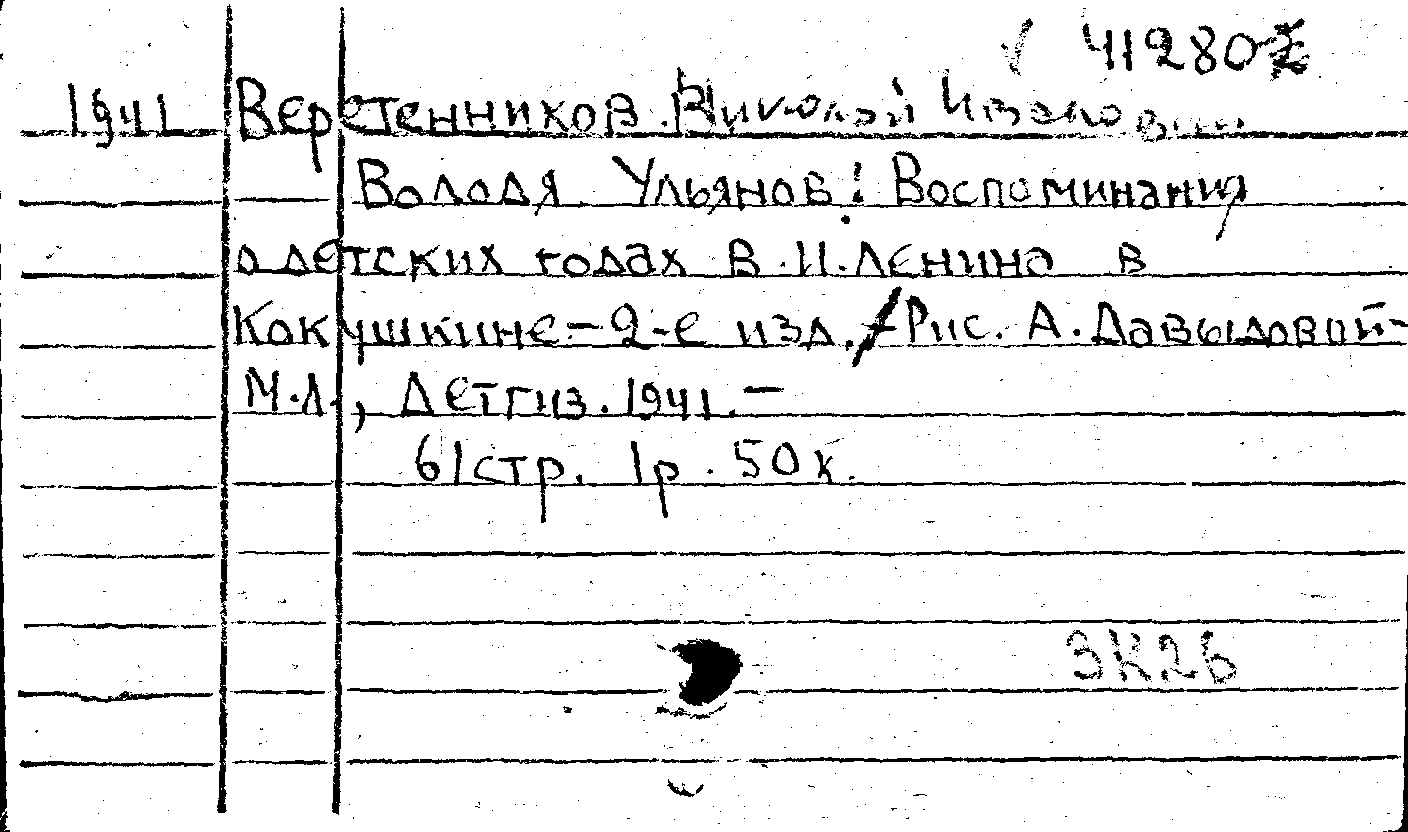 41280
1941 Веретенников. Николай Иванович
Володя Ульянов: Воспоминания
о детских годах В.И.Ленина в
Кокушкине-2-е изд. Рис. А.Давыдовой-
М.Л., Детгиз.1941.-
61стр. 1р. 50к.
3К26